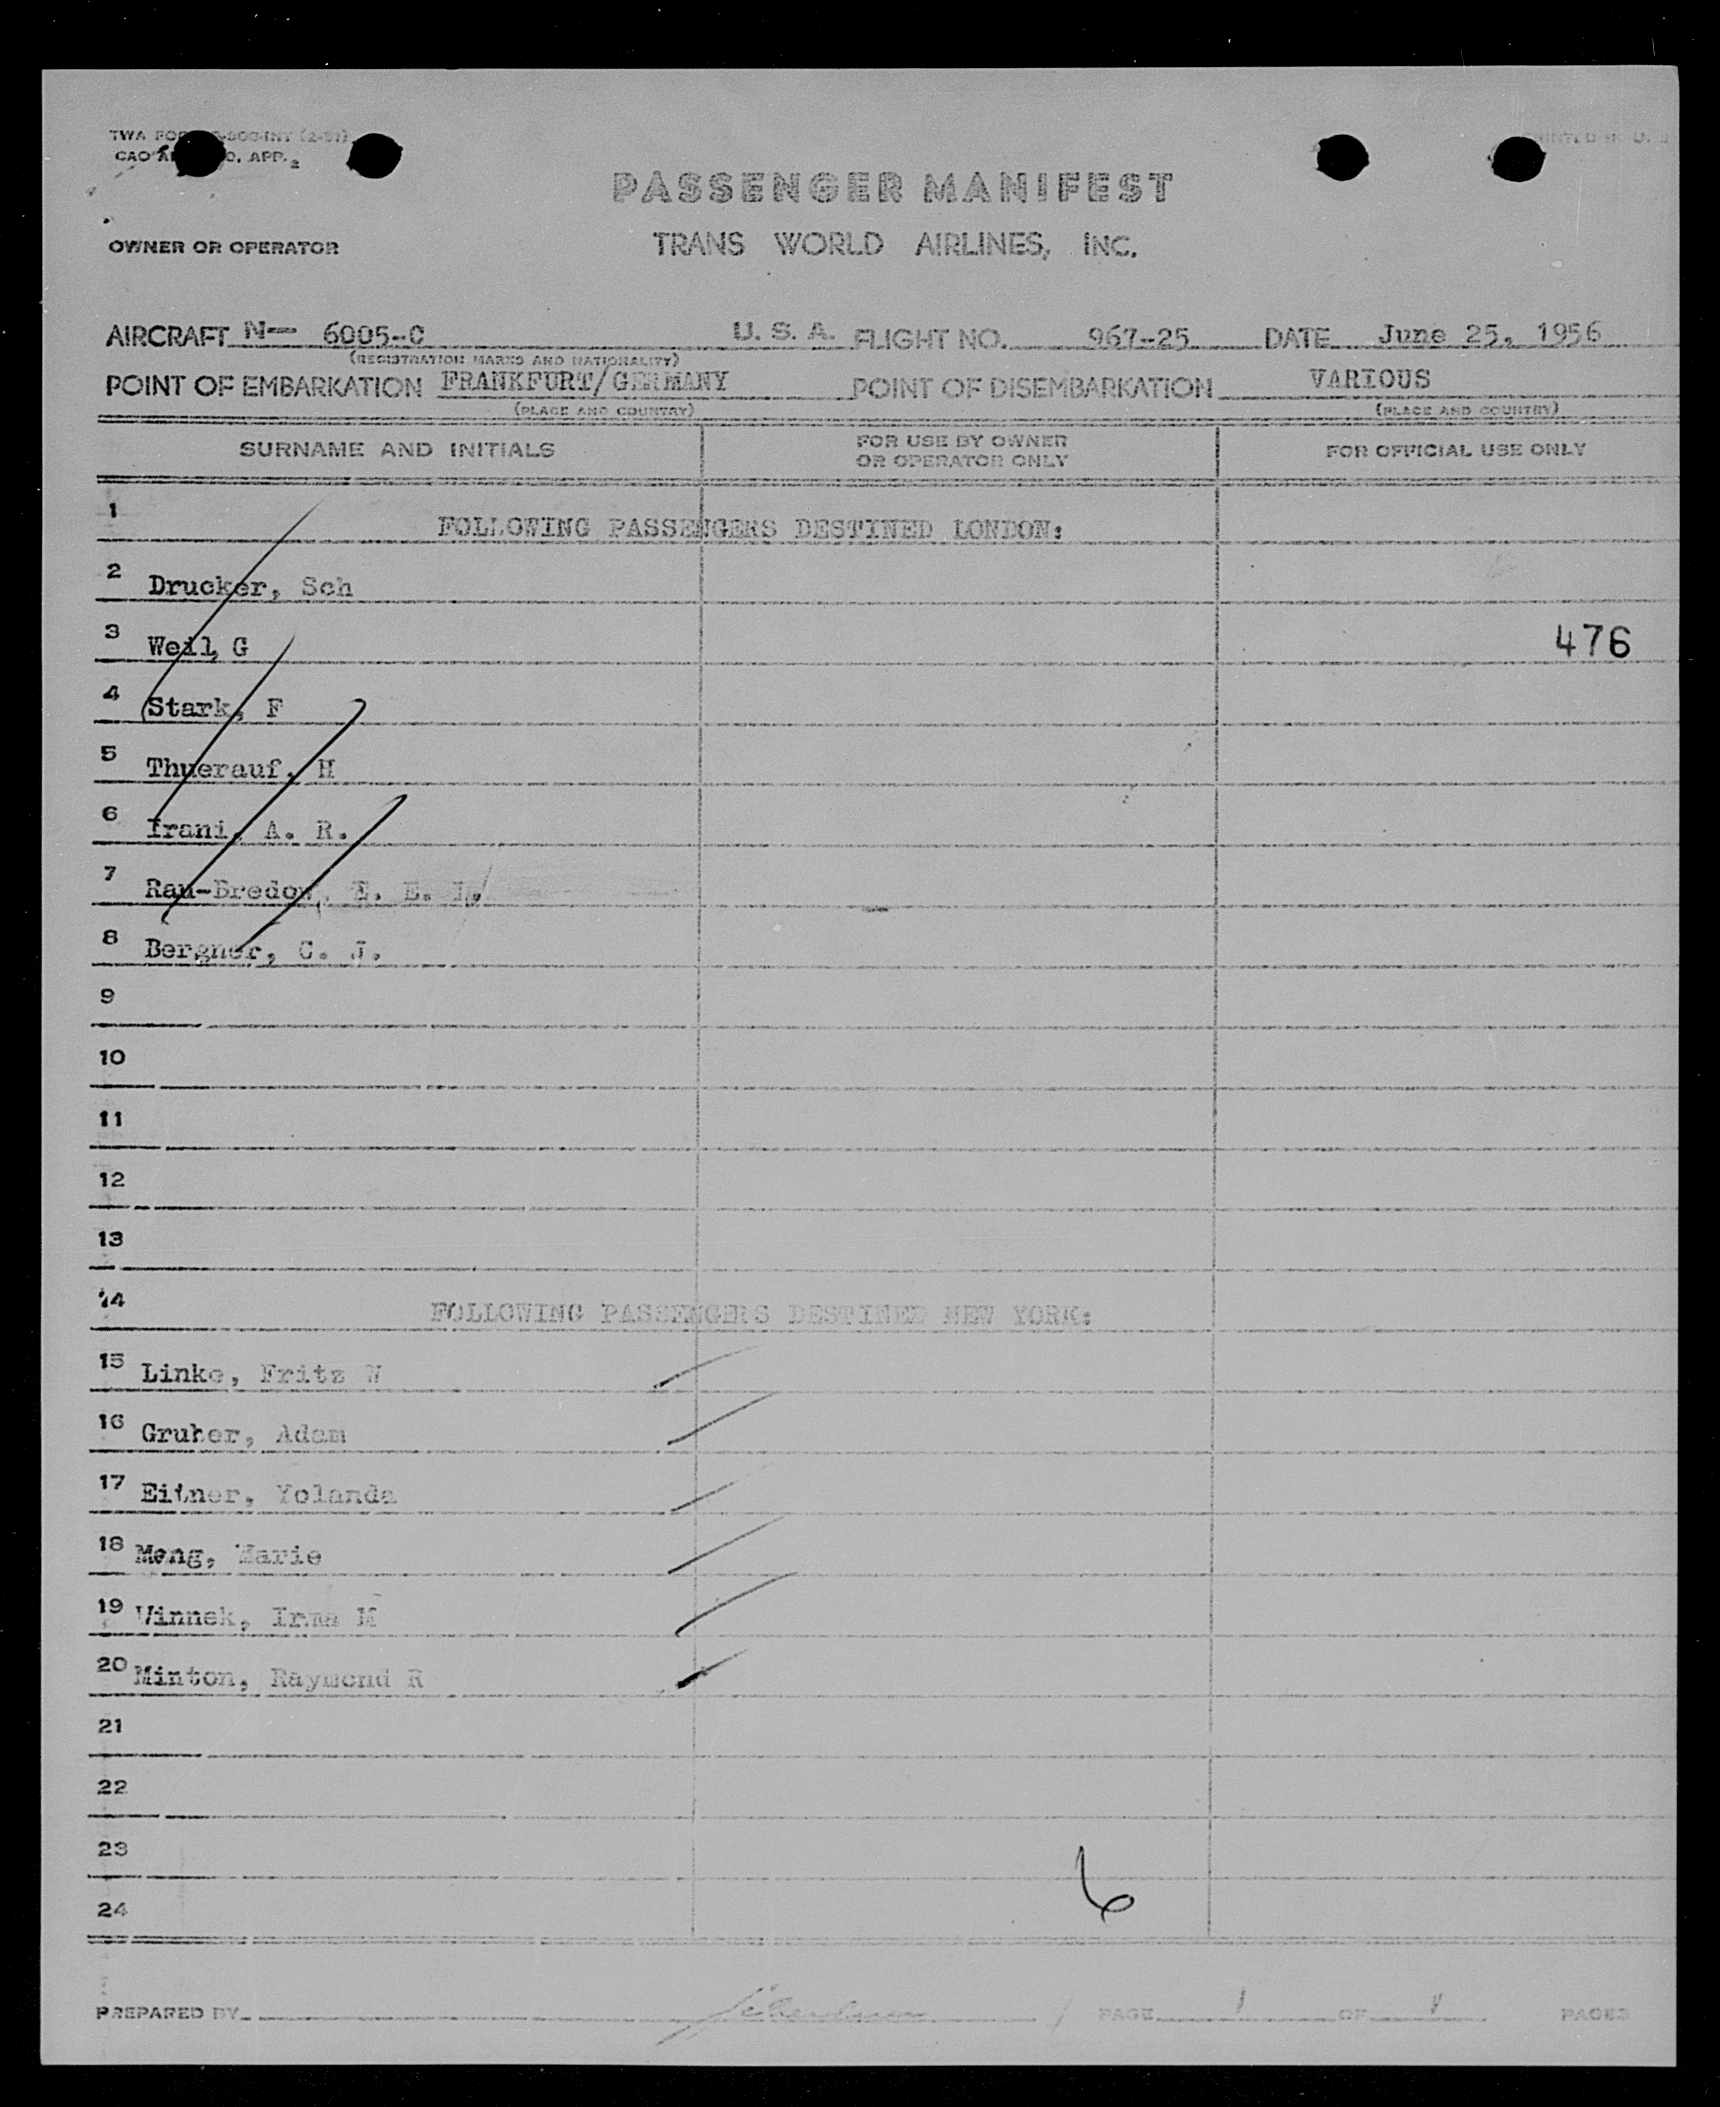 PASSENGER MANIFEST
OWNER OR OPERATOR TRANS WORLD AIRLINES, INC.
AIRCRAFT N— 6005-C U. S. A. FLIGHT NO. 967-25 DATE June 25, 1956
(REGISTRATION MARKS AND NATIONALITY)
POINT OF EMBARKATION FRANKFURT/GERMANY POINT OF DISEMBARKATION VARIOUS
(PLACE AND COUNTRY) (PLACE AND COUNTRY)
SURNAME AND INITIALS FOR USE BY OWNER OR OPERATOR ONLY FOR OFFICIAL USE ONLY
1 FOLLOWING PASSENGERS DESTINED LONDON:
2 Drucker, Sch
3 Weil, G 476
4 Stark, F
5 Thuerauf, H
6 Irani, A. R.
7 Rau-Bredow, E. E. I.
8 Bergner, C. J.
9
10
11
12
13
14 FOLLOWING PASSENGERS DESTINED NEW YORK:
15 Linke, Fritz W
16 Gruber, Adam
17 Eitner, Yolanda
18 Meng, Marie
19 Winnek, Irma M
20 Minton, Raymond R
21
22
23
24 6
PREPARED BY PAGE 1 OF PAGES